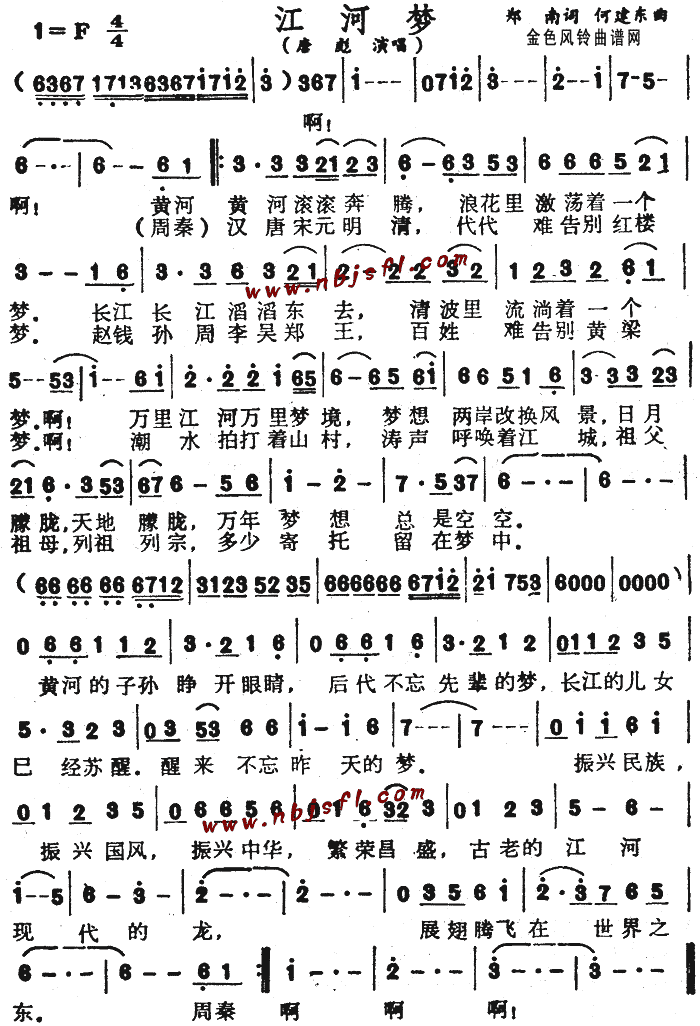 江河梦
1=F 4/4
郑南词 何建东曲
(唐彪 演唱)
金色风铃曲谱网
(6367 1713 6367 1712 | 3·) 367 | 1--- | 0712 | 3--- | 2--1 | 7-5- |
啊!
6-·- | 6-- 61 |: 3·3 3 21 23 | 6·- 63 53 | 6 6 6 5 21 |
啊! 黄河 黄 河滚滚奔 腾, 浪花里 激荡着一个
(周秦)汉 唐宋元明 清, 代代 难告别红楼
3--16 | 3·3 6 3 21 | 2·-22 32 | 12 323 61 |
www.nbjsfl.com
梦. 长江长 江滔滔东 去, 清波里 流淌着一个
梦. 赵钱孙 周李吴郑 王, 百姓 难告别黄梁
5--53 | 1--61 | 2·2 2 1 65 | 6-65 61 | 66 51 6 | 3-33 23 |
梦.啊! 万里江 河万里梦境, 梦想 两岸改换风 景,日月
梦.啊! 潮水 拍打着山村, 涛声 呼唤着江 城,祖父
21 6·3 53 | 67 6-56 | 1-2- | 7·5 37 | 6-·- | 6-·- |
朦胧,天地 朦胧, 万年 梦 想 总 是空 空.
祖母,列祖 列宗, 多少 寄 托 留 在梦 中.
(66 66 66 6712 | 3123 52 35 | 666666 6712 | 21 753 | 6000 | 0000) |
0 66 1 12 | 3·21 6 | 0 66 1 6 | 3·2 1 2 | 011235 |
黄河的子孙 睁 开眼睛, 后代不忘 先 辈的梦,长江的儿女
5·323 | 03 53 66 | 1-16 | 7--- | 7--- | 01161 |
已 经苏醒.醒来 不忘昨 天的梦. 振兴民族,
01235 | 06656 | 016323 | 01 2 3 | 5-6- |
www.nbjsfl.com
振兴国风, 振兴中华, 繁荣昌盛, 古老的 江 河
1--5 | 6-3- | 2-·- | 2-·- | 03561 | 2·3765 |
现 代 的 龙, 展翅腾飞在 世界之
6-·- | 6--61 :| 1-·- | 2-·- | 3-·- | 3-·- |
东. 周秦 啊 啊 啊!